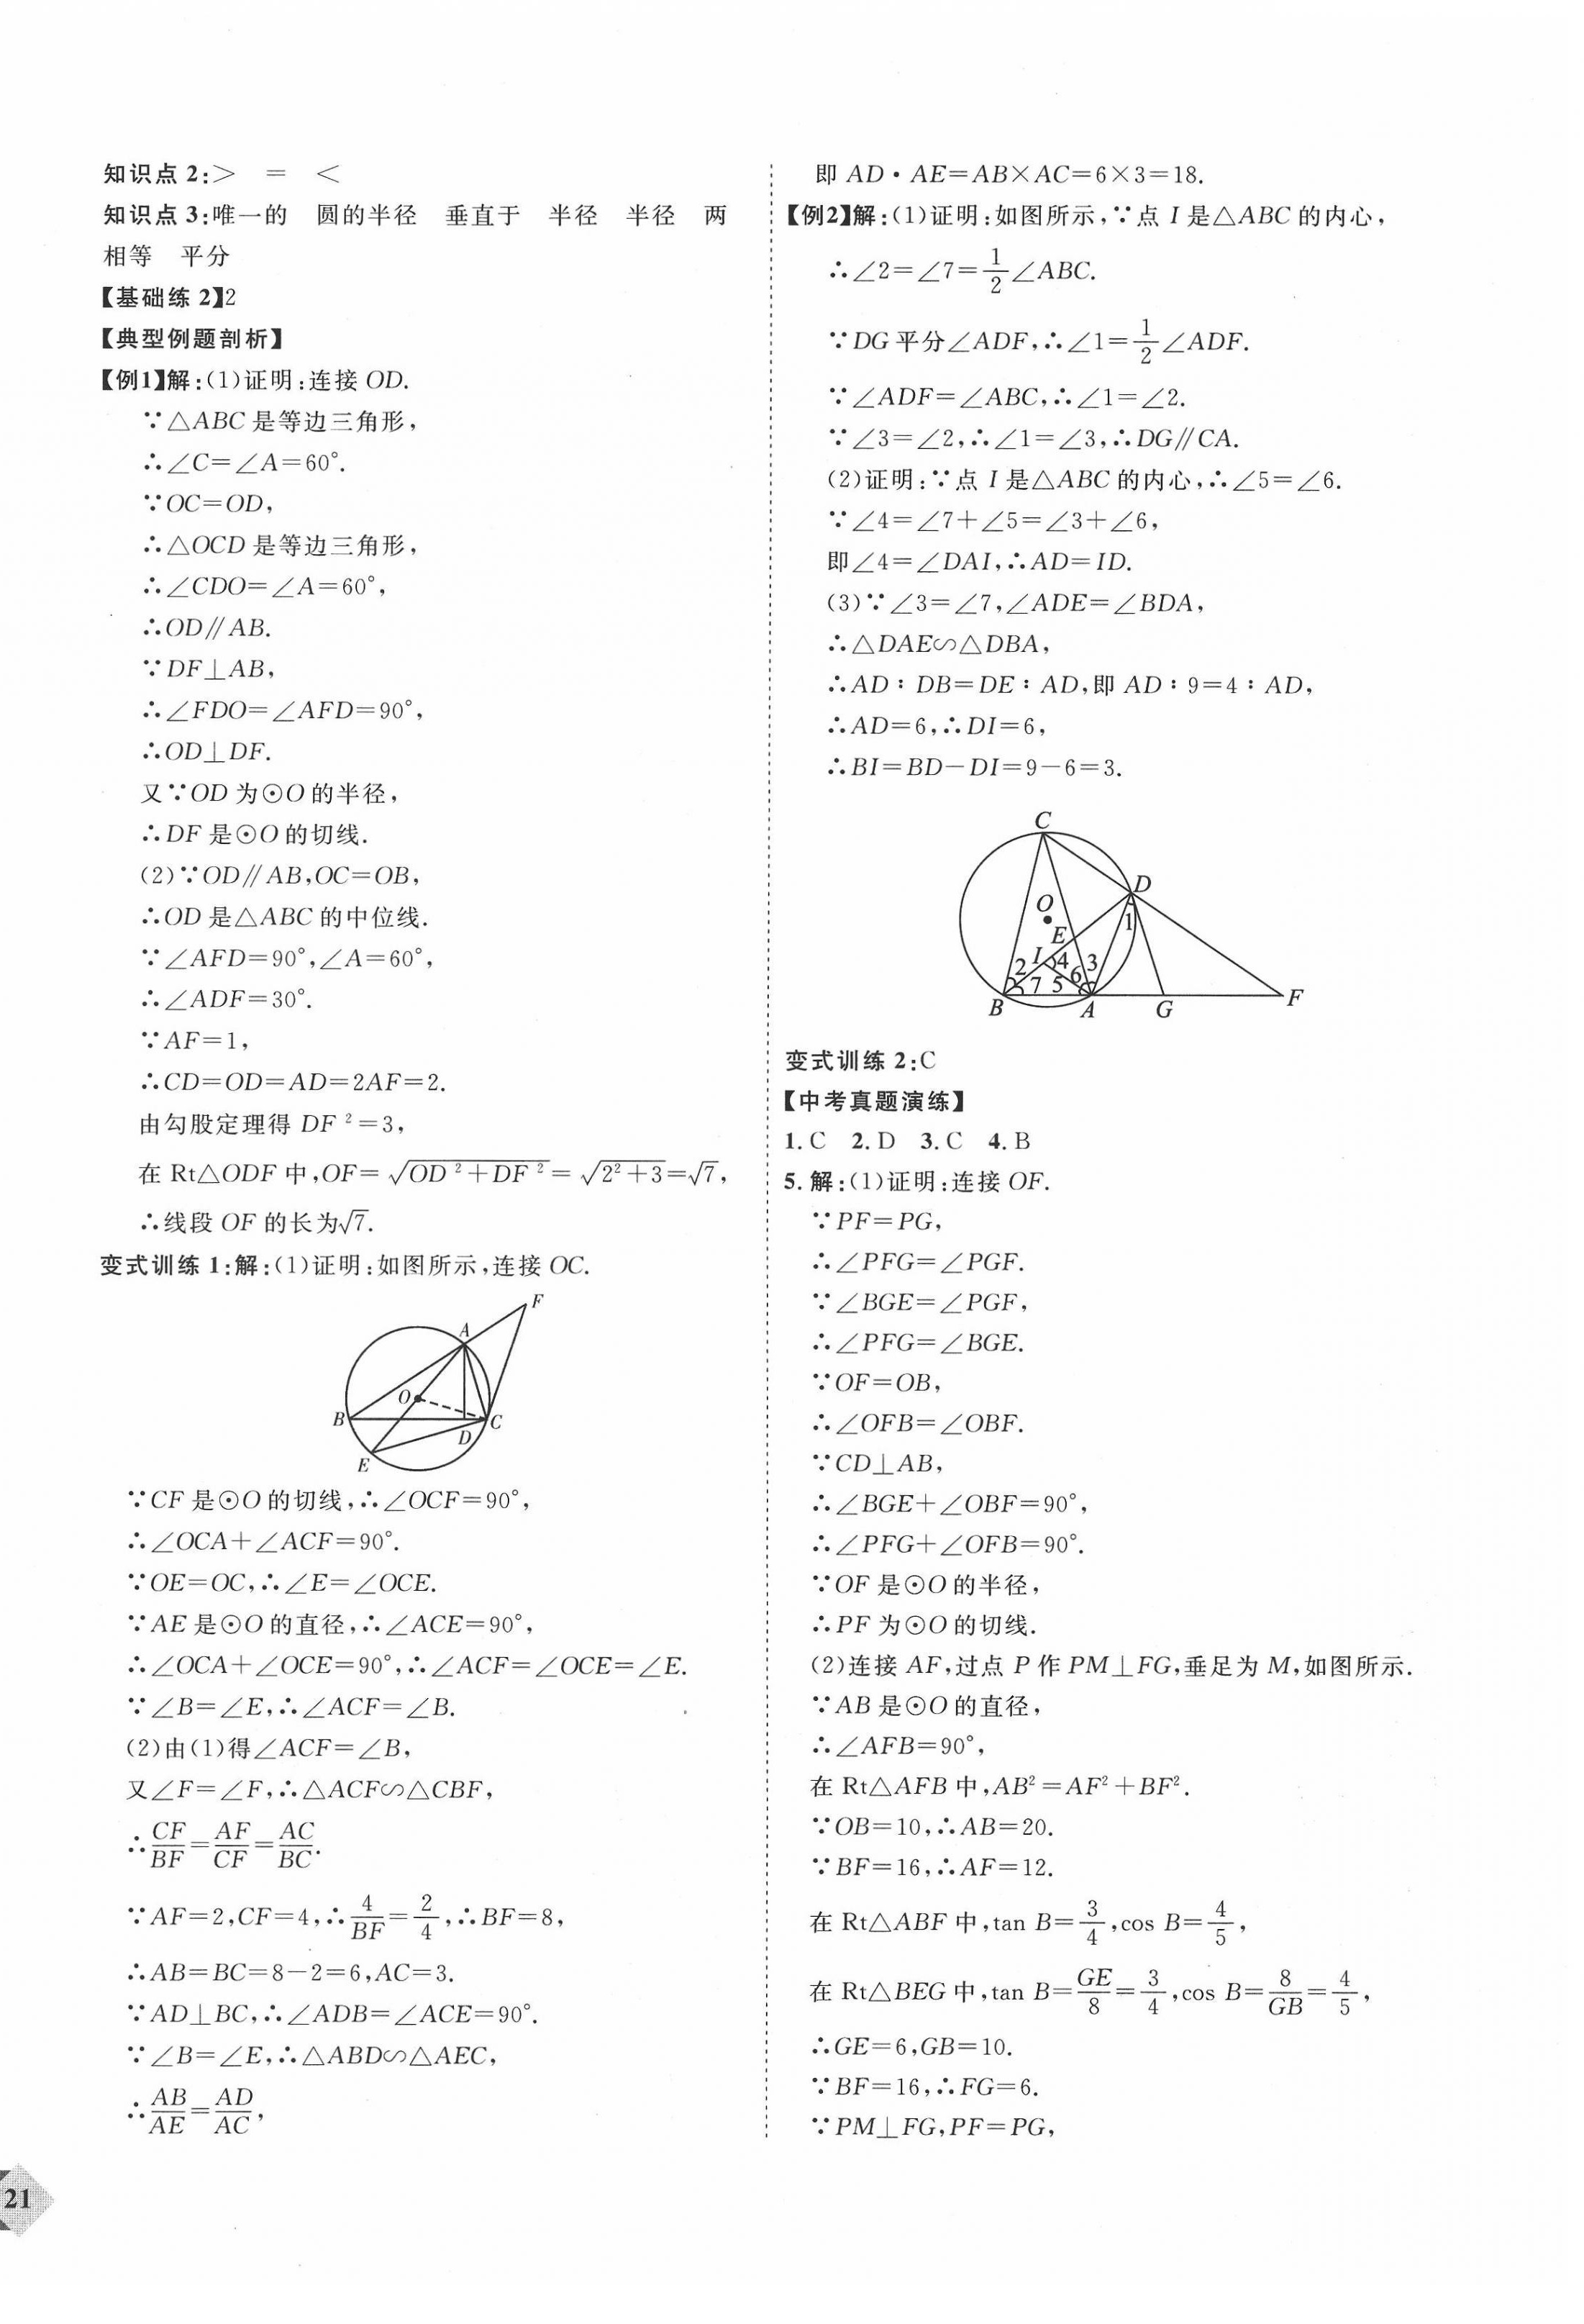 知识点 2:＞　＝　＜
知识点 3:唯一的　圆的半径　垂直于　半径　半径　两
相等　平分
【基础练 2】2
【典型例题剖析】
【例1】解:(1)证明:连接 OD.
∵△ABC 是等边三角形,
∴∠C=∠A=60°.
∵OC=OD,
∴△OCD 是等边三角形,
∴∠CDO=∠A=60°,
∴OD∥AB.
∵DF⊥AB,
∴∠FDO=∠AFD=90°,
∴OD⊥DF.
又∵OD 为⊙O 的半径,
∴DF 是⊙O 的切线.
(2)∵OD∥AB,OC=OB,
∴OD 是△ABC 的中位线.
∵∠AFD=90°,∠A=60°,
∴∠ADF=30°.
∵AF=1,
∴CD=OD=AD=2AF=2.
由勾股定理得 DF²=3,
在 Rt△ODF 中,OF=√(OD²+DF²)=√(2²+3)=√7,
∴线段 OF 的长为√7.
变式训练 1:解:(1)证明:如图所示,连接 OC.
F
A
O
B
C
D
E
∵CF 是⊙O 的切线,∴∠OCF=90°,
∴∠OCA+∠ACF=90°.
∵OE=OC,∴∠E=∠OCE.
∵AE 是⊙O 的直径,∴∠ACE=90°,
∴∠OCA+∠OCE=90°,∴∠ACF=∠OCE=∠E.
∵∠B=∠E,∴∠ACF=∠B.
(2)由(1)得∠ACF=∠B,
又∠F=∠F,∴△ACF∽△CBF,
∴CF/BF=AF/CF=AC/BC.
∵AF=2,CF=4,∴4/BF=2/4,∴BF=8,
∴AB=BC=8-2=6,AC=3.
∵AD⊥BC,∴∠ADB=∠ACE=90°.
∵∠B=∠E,∴△ABD∽△AEC,
∴AB/AE=AD/AC,
21
即 AD·AE=AB×AC=6×3=18.
【例2】解:(1)证明:如图所示,∵点 I 是△ABC 的内心,
∴∠2=∠7=1/2∠ABC.
∵DG 平分∠ADF,∴∠1=1/2∠ADF.
∵∠ADF=∠ABC,∴∠1=∠2.
∵∠3=∠2,∴∠1=∠3,∴DG∥CA.
(2)证明:∵点 I 是△ABC 的内心,∴∠5=∠6.
∵∠4=∠7+∠5=∠3+∠6,
即∠4=∠DAI,∴AD=ID.
(3)∵∠3=∠7,∠ADE=∠BDA,
∴△DAE∽△DBA,
∴AD∶DB=DE∶AD,即 AD∶9=4∶AD,
∴AD=6,∴DI=6,
∴BI=BD-DI=9-6=3.
C
D
O
1
E
2 I 4 3
7 5 6
B A G F
变式训练 2:C
【中考真题演练】
1. C　2. D　3. C　4. B
5. 解:(1)证明:连接 OF.
∵PF=PG,
∴∠PFG=∠PGF.
∵∠BGE=∠PGF,
∴∠PFG=∠BGE.
∵OF=OB,
∴∠OFB=∠OBF.
∵CD⊥AB,
∴∠BGE+∠OBF=90°,
∴∠PFG+∠OFB=90°.
∵OF 是⊙O 的半径,
∴PF 为⊙O 的切线.
(2)连接 AF,过点 P 作 PM⊥FG,垂足为 M,如图所示.
∵AB 是⊙O 的直径,
∴∠AFB=90°,
在 Rt△AFB 中,AB²=AF²+BF².
∵OB=10,∴AB=20.
∵BF=16,∴AF=12.
在 Rt△ABF 中,tan B=3/4,cos B=4/5,
在 Rt△BEG 中,tan B=GE/8=3/4,cos B=8/GB=4/5,
∴GE=6,GB=10.
∵BF=16,∴FG=6.
∵PM⊥FG,PF=PG,